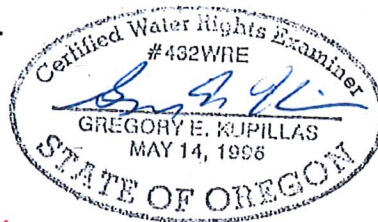 Certified Water Rights Examiner
#432WRE
GREGORY E. KUPILLAS
MAY 14, 1996
STATE OF OREGON